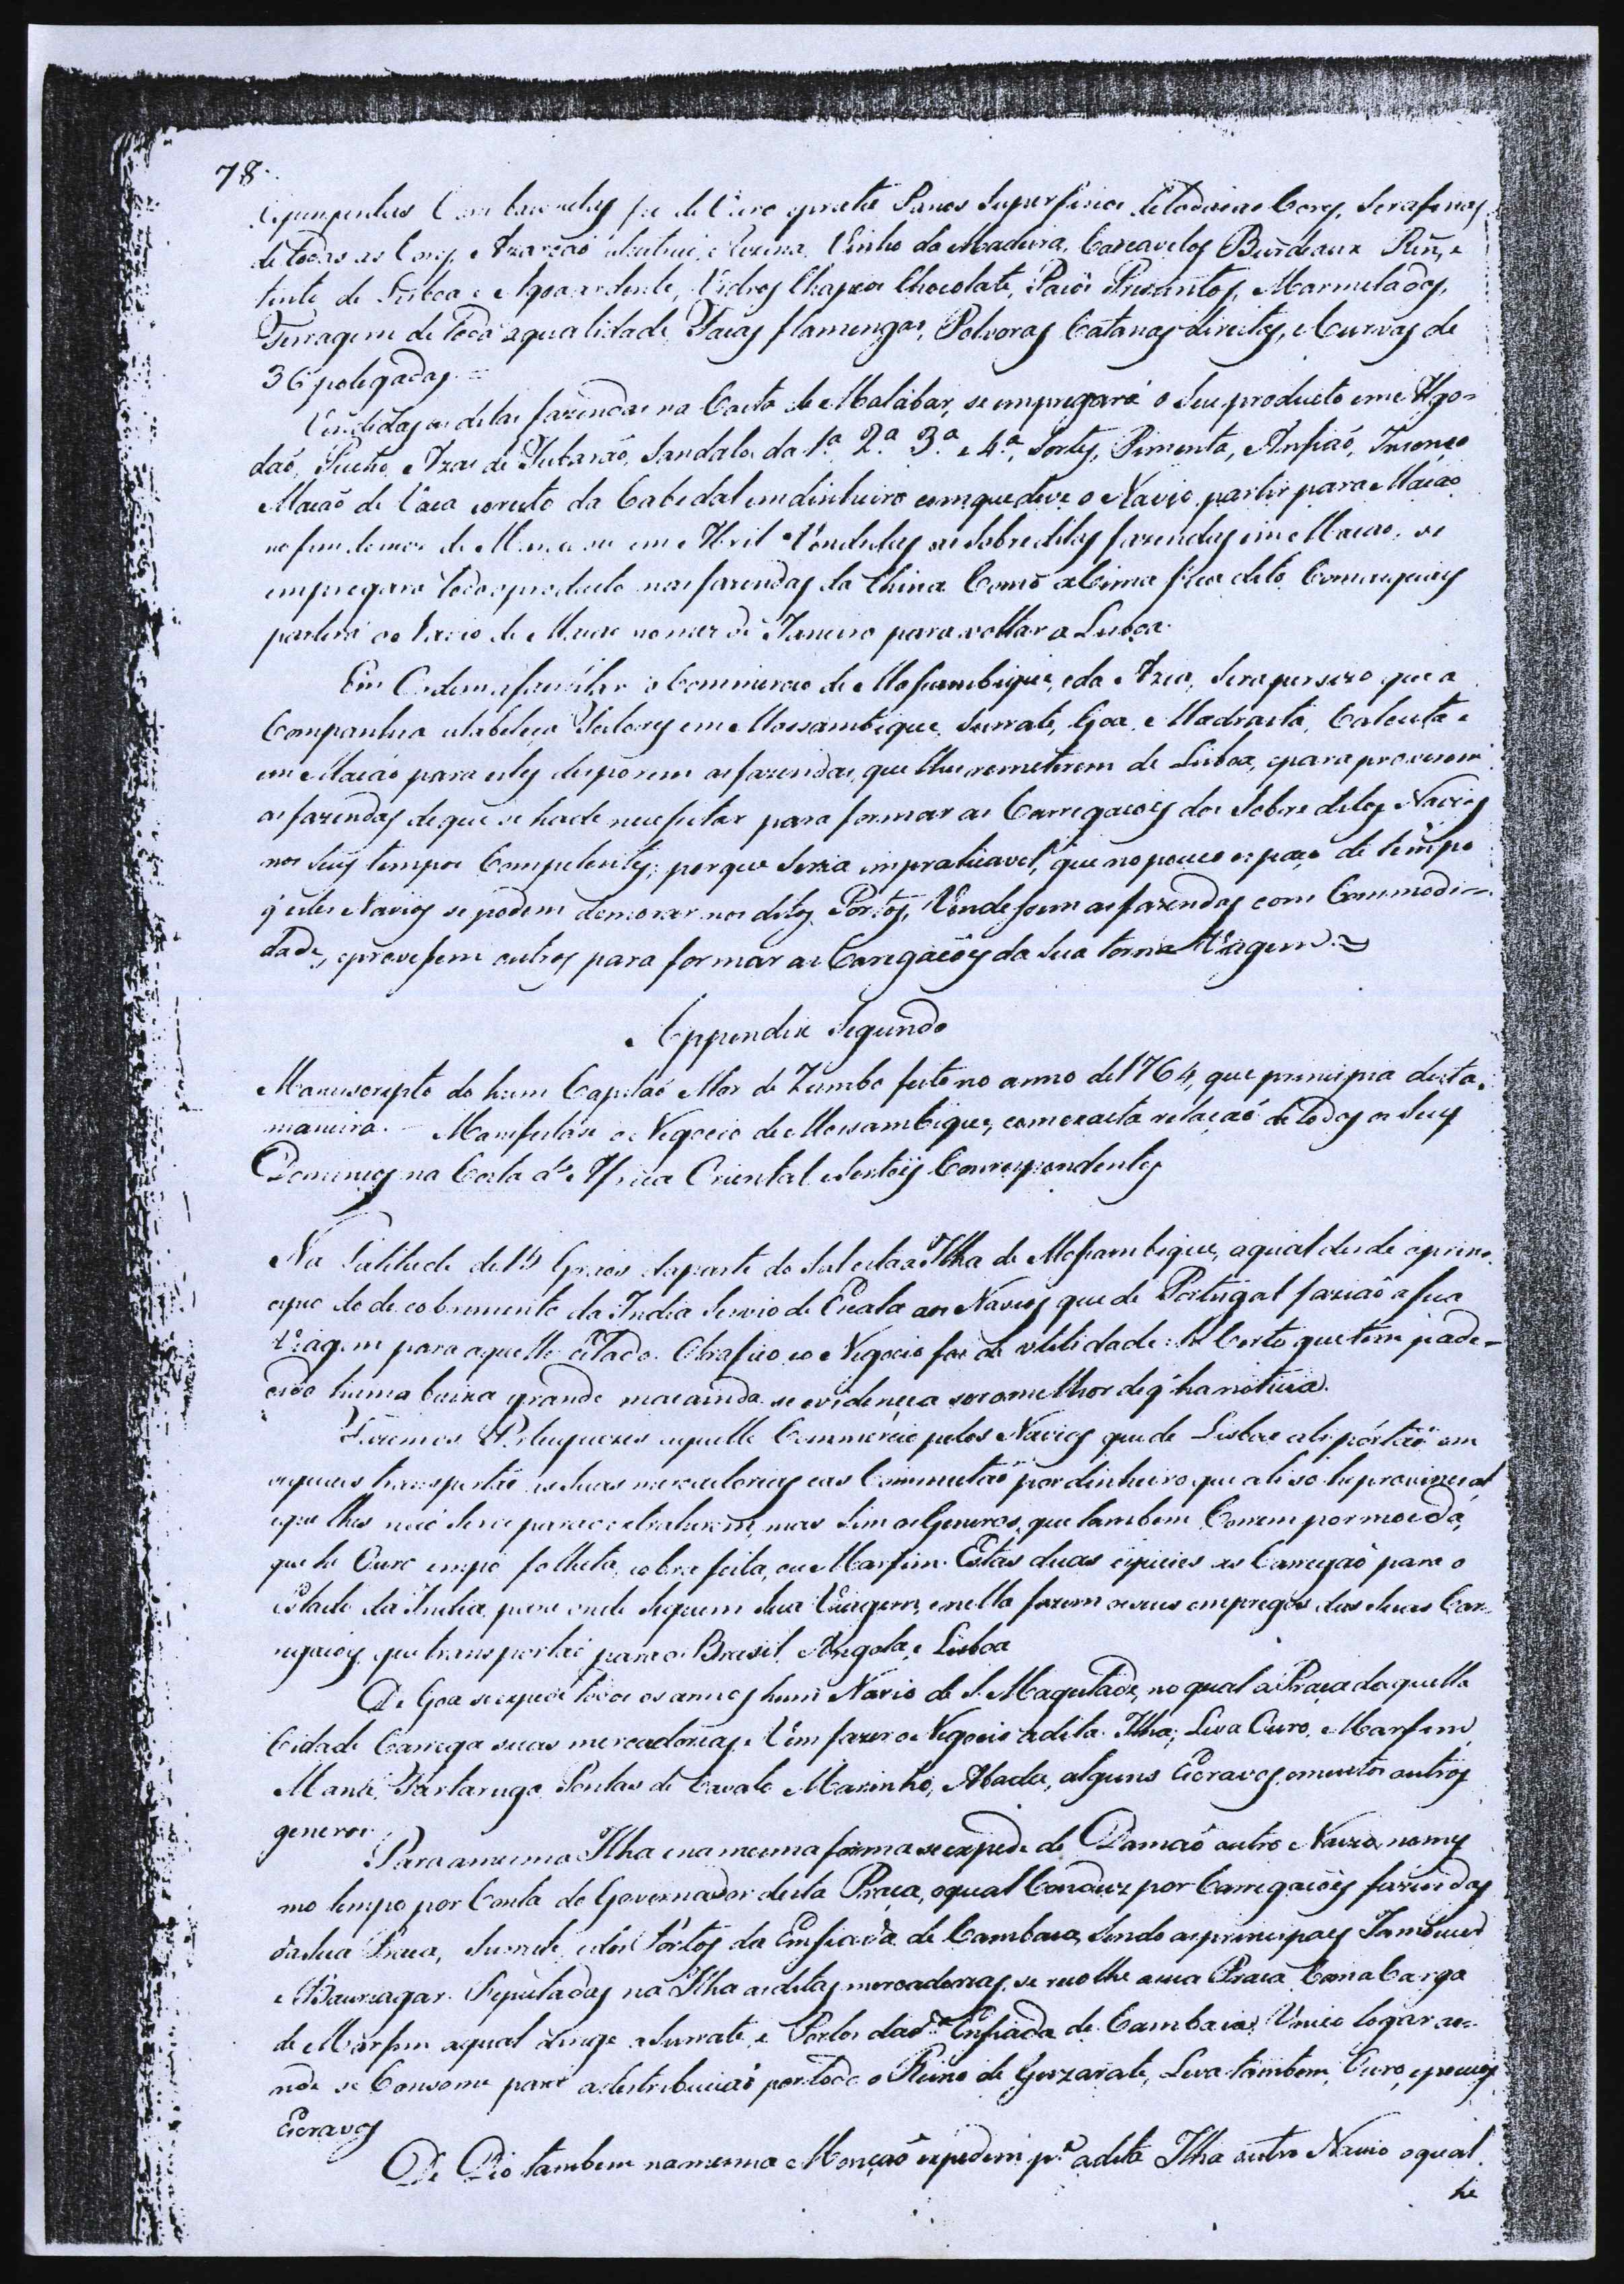 78.
de Ouro e prata Panos Superfinos de todas as Cores, Serafinas
de todas as Cores, Azarcaõ Vinho da Madeira, Carcavelos Burdeaux
de Lisboa e Agoa ardente, Vidros Chapeos Chocolate, Paios Presuntos, Marmeladas,
Ferragem de toda a qualidade, Facas flamengas, Polvoras Catanas direitas, e Curvas de
36 polegadas =
Vendidas as ditas fazendas na Costa de Malabar, se empregará o Seu producto em Algo-
daõ, Pucho, Azas de Tubaraõ, Sandalo da 1.ª 2.ª 3.ª e 4.ª Sortes, Pimenta, Anfiaõ, Incenso
e o resto da Cabedal em dinheiro com que deve o Navio partir para Macao
no fim do mes de ou em Abril Vendidas as Sobreditas fazendas em Macao, se
empregara todo o producto nas fazendas da China Como a Cima fica dito Com as quaes
partirá o Navio de Macao no mez de Janeiro para voltar a Lisboa.
Em Ordem a facilitar o Commercio de Mossambique, e da Azia, Sera perciso que a
Companhia estabeleça Feitores em Mossambique Surrate, Goa, e Madrasta, Calcuta e
em Macáo para estes disporem as fazendas, que lhe remeterem de Lisboa, e para proverem
as fazendas de que se hade necessitar para formar as Carregaçoẽs dos Sobre ditos Navios
nos Seus tempos Competentes; porque Seria impraticavel, que no pouco espaço de tempo
q̃ estes Navios se podem demorar nos ditos Portos, Vendessem as fazendas com Commodi-
dade, e provessem outras para formar as Caregaçoẽs da Sua torna Viagem =
Appendix Segundo
Manuscripto do hum Capitaõ Mor de Zumbo feito no anno de 1764, que principia desta
maneira. — Manifestase o Negocio de Mossambique, com exacta relaçaõ de todos os Seus
Dominios na Costa d'Africa Oriental e Certoẽs Correspondentes
Na Latitude de 15 Graos da parte do Sul esta a Ilha de Mossambique, a qual desde o prin-
cipio do descobrimento da India Servio de Escala aos Navios que de Portugal faziaõ a sua
Viagem para aquelle Estado. O trafico e o Negocio foi de utilidade: he Certo que tem pade-
cido huma baixa grande mas ainda se evidenceia ser o melhor de q̃ ha noticia.
Fazem os Portuguezes aquelle Commercio pelos Navios que de Lisboa ali pórtaõ em
os quaes transportaõ as Suas mercadorias e as Commutaõ por dinheiro que ali só he provincial
e que lhes naõ Serve para o extrahirem, mas Sim os Generos, que tambem Correm por moeda,
que he Ouro em pó folheta, e obra feita, ou Marfim. Estas duas especies as Carregaõ para o
Estado da India, para onde Seguem Sua Viagem, e nella fazem os seus empregos das Suas Car-
regaçoẽs que transportaõ para o Brasil Angola, e Lisboa
De Goa se expede todos os annos hum Navio de S. Magestade, no qual a Praça daquella
Cidade Carrega suas mercadorias, e Vem fazer o Negocio a dita Ilha; Leva Ouro, Marfim,
Maná, Tartaruga Pontas de Cavalo Marinho, Abada, alguns Escravos, e muitos outros
generos.
Para a mesma Ilha e na mesma forma se expede de Damaõ outro Navio no mes-
mo tempo por Conta do Governador desta Praça, o qual Conduz por Carregaçoẽs fazendas
da Sua Praca, Surrate, e dos Portos da Enfiada de Cambaia, Sendo as principaes
e Baunagar. Reputadas na Ilha as ditas mercadorias, se recolhe a sua Praça Com a Carga
de Marfim a qual dirige a Surrate, e Portos da d.ª Enfiada de Cambaia Unico logar ao
onde se Consome para a destribuiçaõ por todo o Reino de Guzarate, Leva tambem Ouro, e poucos
Escravos
De Dio tambem na mesma Monçaõ expedem p.ª a dita Ilha outro Navio o qual
he